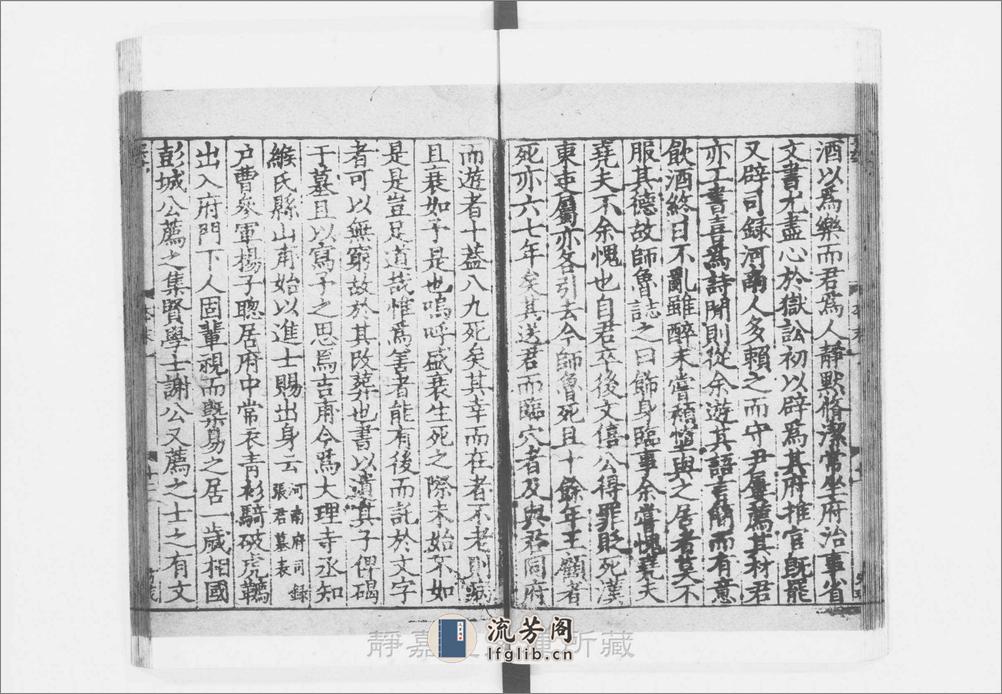 酒以爲樂而君爲人靜默脩潔常坐府治事省
文書尤盡心於獄訟初以辟爲其府推官旣罷
又辟司録河南人多賴之而守尹屢薦其材君
亦工書喜爲詩閒則從余遊其語言簡而有意
飲酒終日不亂雖醉未嘗頹墮與之居者莫不
服其德故師魯誌之曰飾身臨事余嘗愧堯夫
堯夫不余愧也自君卒後文僖公得罪貶死漢
東吏屬亦各引去今師魯死且十餘年王顧者
死亦六七年矣其送君而臨穴者及與君同府
而遊者十蓋八九死矣其幸而在者不老則病
且衰如予是也嗚呼盛衰生死之際未始不如
是是豈足道哉惟爲善者能有後而託於文字
者可以無窮故於其改葬也書以遺其子俾碣
于墓且以寫予之思焉吉甫今爲大理寺丞知
緱氏縣山甫始以進士賜出身云
河南府司録
張君墓表
戶曹參軍楊子聰居府中常衣青衫騎破虎韉
出入府門下人固輩視而槩易之居一歲相國
彭城公薦之集賢學士謝公又薦之士之有文
靜嘉
所藏
流芳阁
lfglib.cn